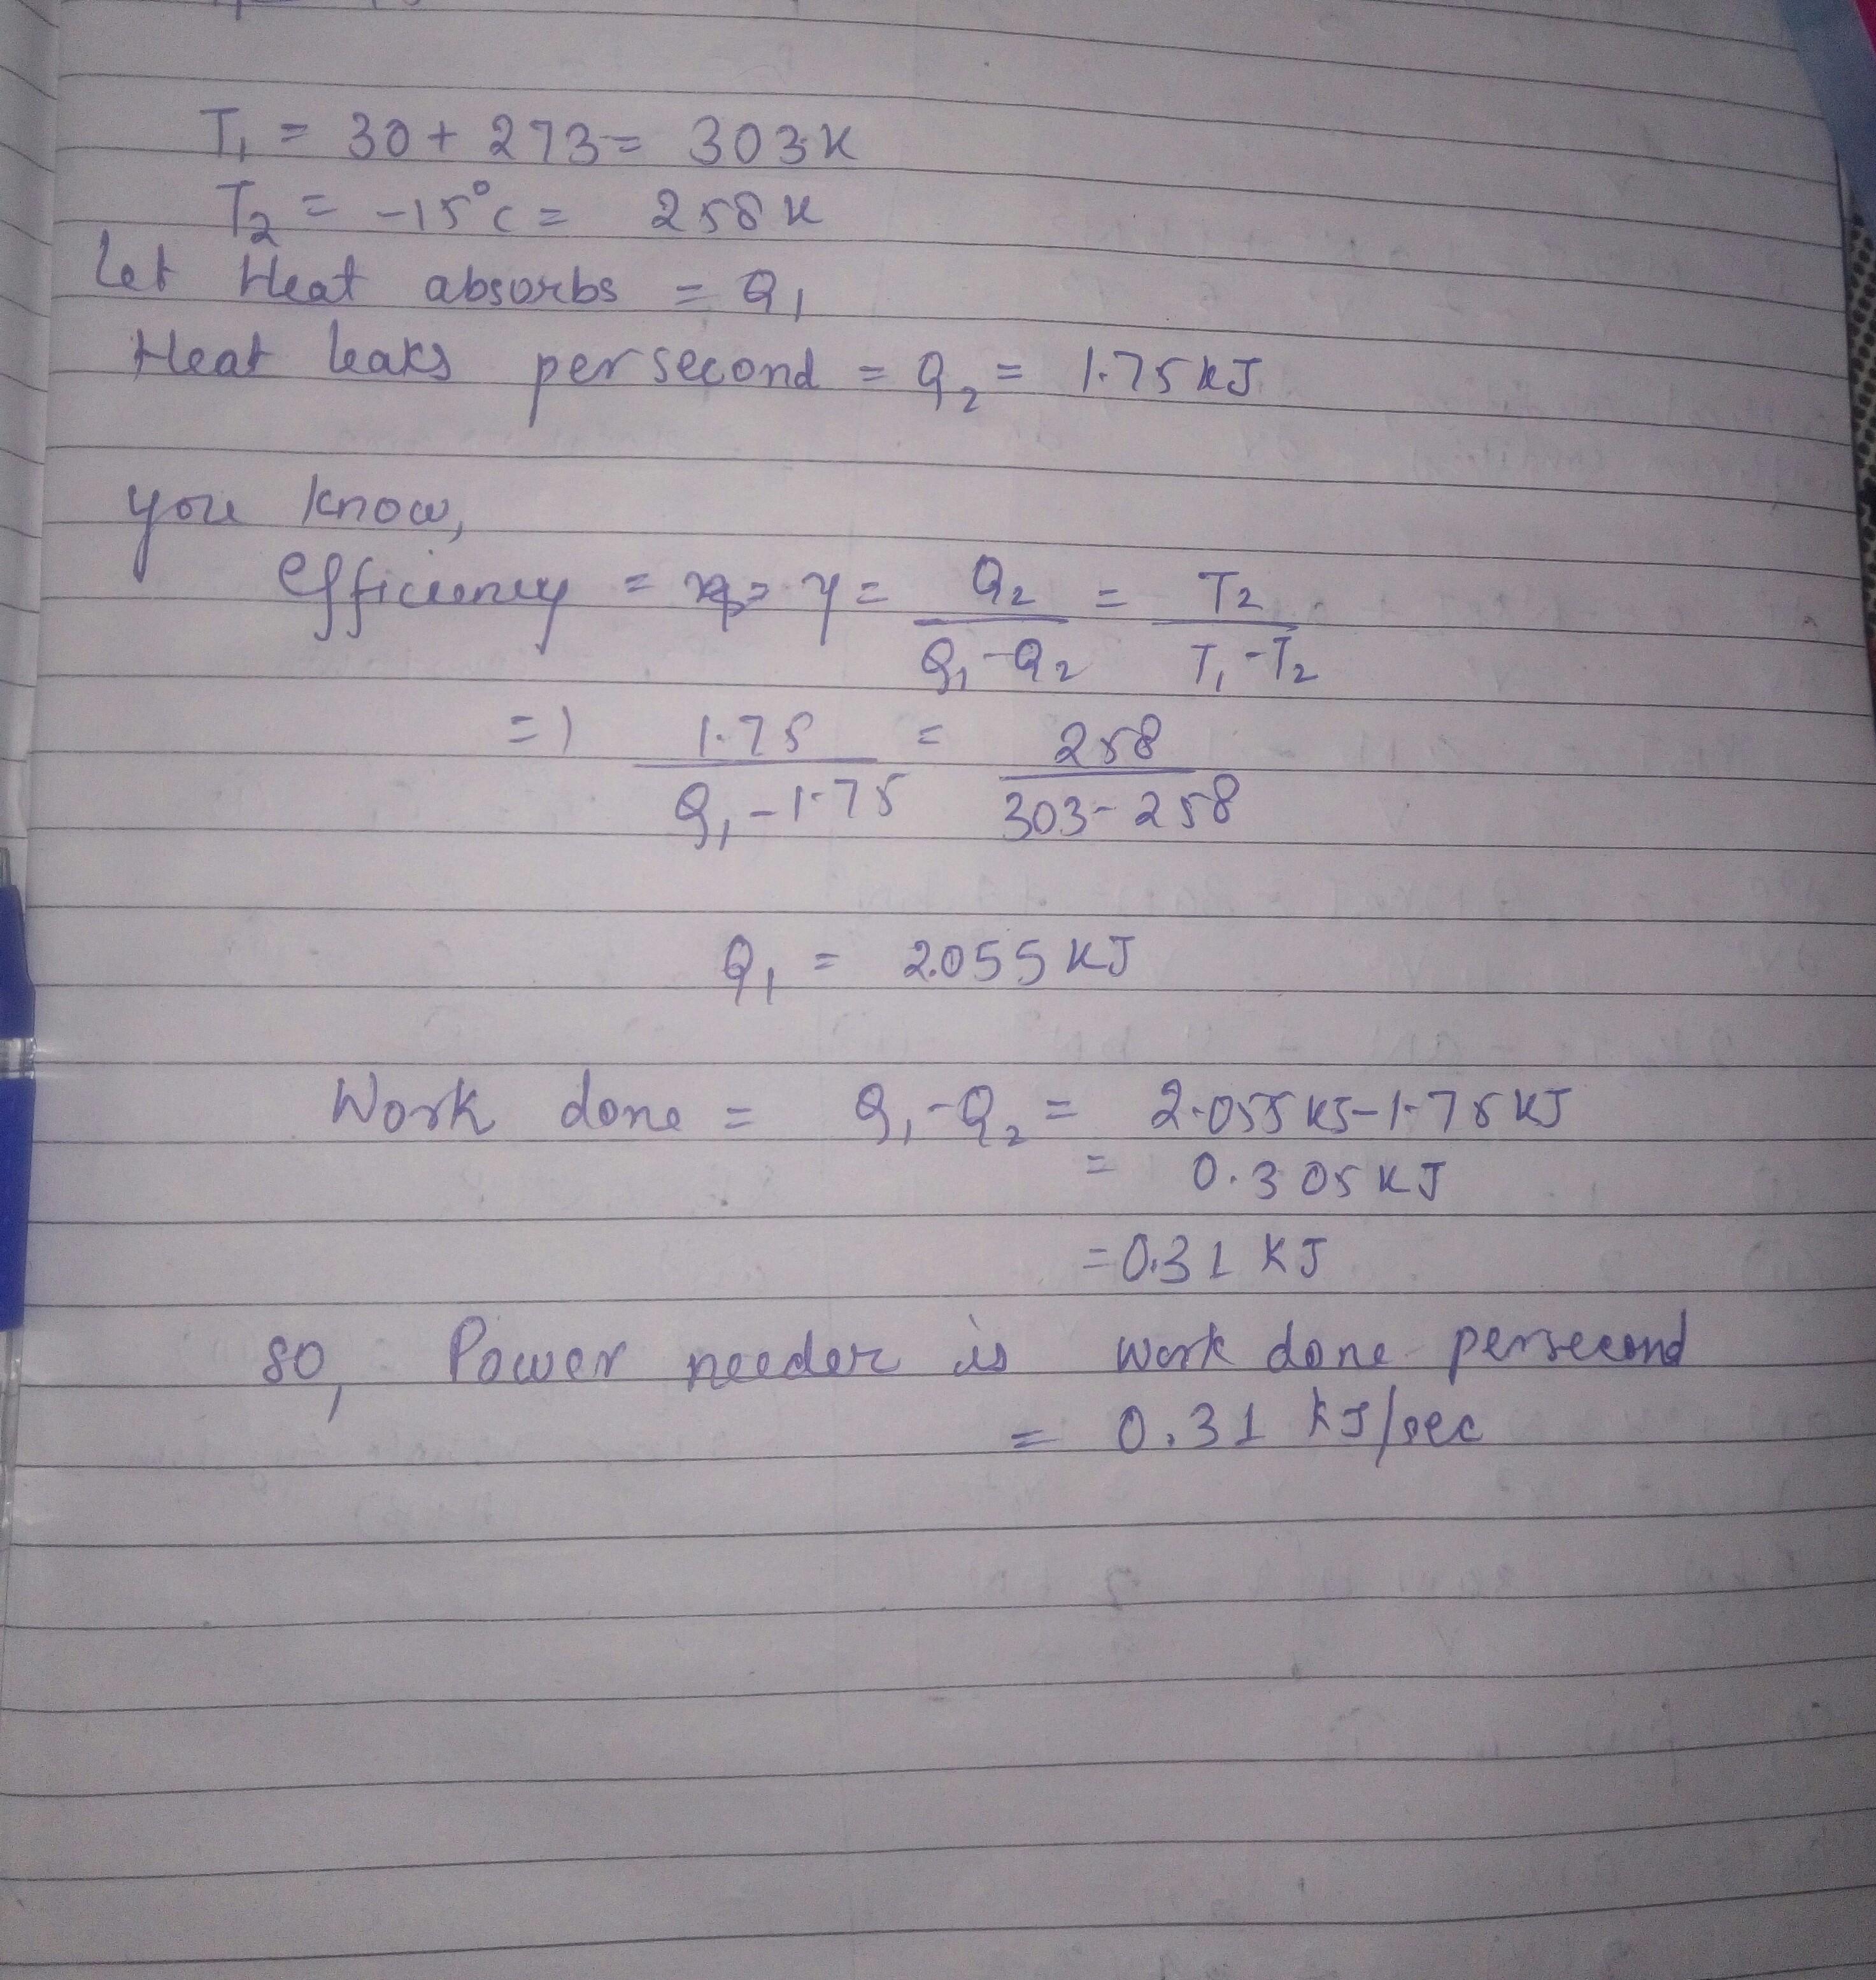 T₁ = 30 + 273 = 303 K
T₂ = -15°C = 258 K
Let Heat absorbs = Q₁
Heat leaks per second = Q₂ = 1.75 kJ
you know,
efficiency = η = Q₂ / (Q₁ - Q₂) = T₂ / (T₁ - T₂)
=) 1.75 / (Q₁ - 1.75) = 258 / (303 - 258)
Q₁ = 2.055 KJ
Work done = Q₁ - Q₂ = 2.055 KJ - 1.75 KJ
= 0.305 KJ
= 0.31 KJ
SO, Power needer is work done persecond
= 0.31 KJ/sec